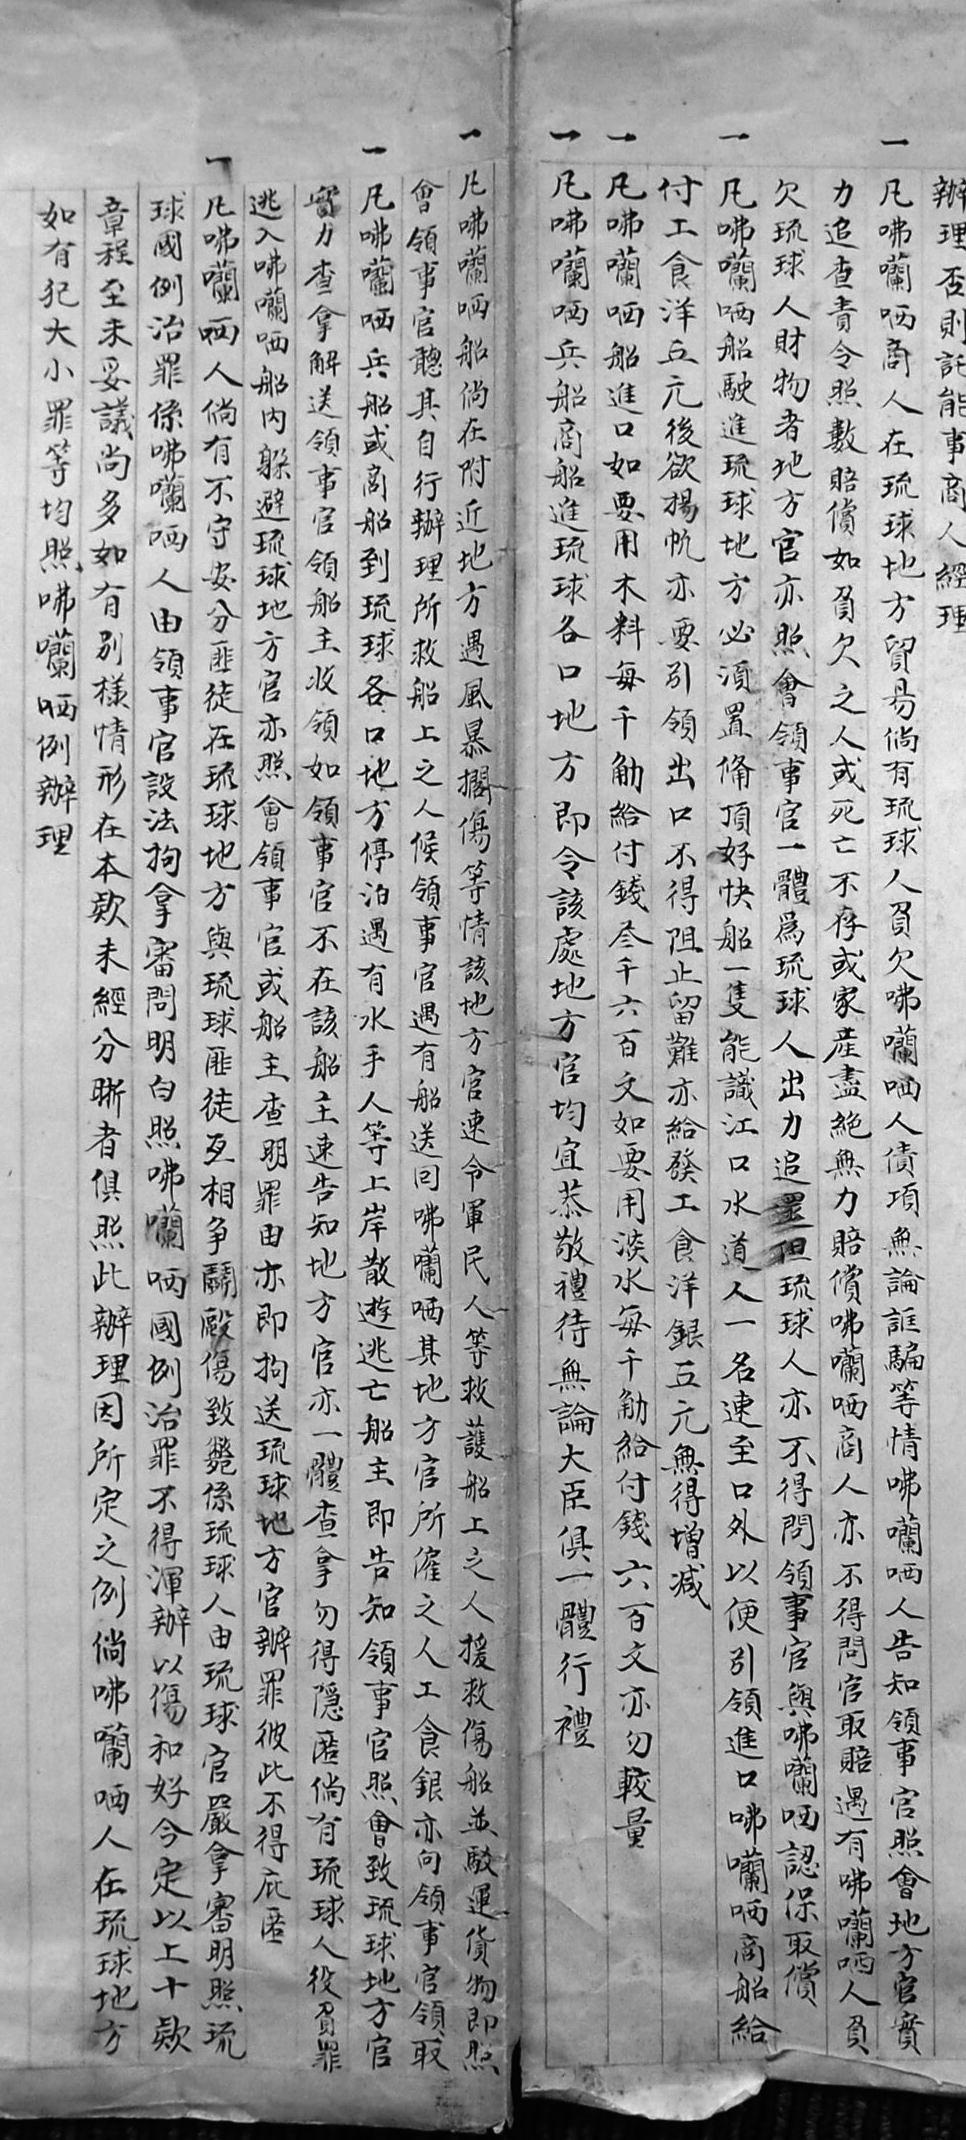 辦理否則託能事商人經理
一 凡咈囒哂商人在琉球地方貿易倘有琉球人負欠咈囒哂人債項無論誆騙等情咈囒哂人告知領事官照會地方官實
力追查責令照數賠償如負欠之人或死亡不存或家產盡絕無力賠償咈囒哂商人亦不得問官取賠遇有咈囒哂人負
欠琉球人財物者地方官亦照會領事官一體爲琉球人出力追還但琉球人亦不得問領事官與咈囒哂認保取償
一 凡咈囒哂船駛進琉球地方必須置俻頂好快船一隻能識江口水道人一名速至口外以便引領進口咈囒哂商船給
付工食洋五元後欲揚帆亦要引領出口不得阻止留難亦給發工食洋銀五元無得增減
一 凡咈囒哂船進口如要用木料每千觔給付錢叁千六百文如要用淡水每千觔給付錢六百文亦勿較量
一 凡咈囒哂兵船商船進琉球各口地方即令該處地方官均宜恭敬禮待無論大臣俱一體行禮
一 凡咈囒哂船倘在附近地方遇風暴擱傷等情該地方官速令軍民人等救護船上之人援救傷船並駁運貨物即照
會領事官聽其自行辦理所救船上之人候領事官遇有船送回咈囒哂其地方官所僱之人工食銀亦向領事官領取
一 凡咈囒哂兵船或商船到琉球各口地方停泊遇有水手人等上岸散遊逃亡船主即告知領事官照會致琉球地方官
實力查拿解送領事官領船主收領如領事官不在該船主速告知地方官亦一體查拿勿得隱匿倘有琉球人役負罪
逃入咈囒哂船內躲避琉球地方官亦照會領事官或船主查明罪由亦即拘送琉球地方官辦罪彼此不得庇匿
一 凡咈囒哂人倘有不守安分匪徒在琉球地方與琉球匪徒互相争鬭毆傷致斃係琉球人由琉球官嚴拿審明照琉
球國例治罪係咈囒哂人由領事官設法拘拿審問明白照咈囒哂國例治罪不得渾辦以傷和好今定以上十款
章程至未妥議尚多如有別樣情形在本款未經分晰者俱照此辦理因所定之例倘咈囒哂人在琉球地方
如有犯大小罪等均照咈囒哂例辦理